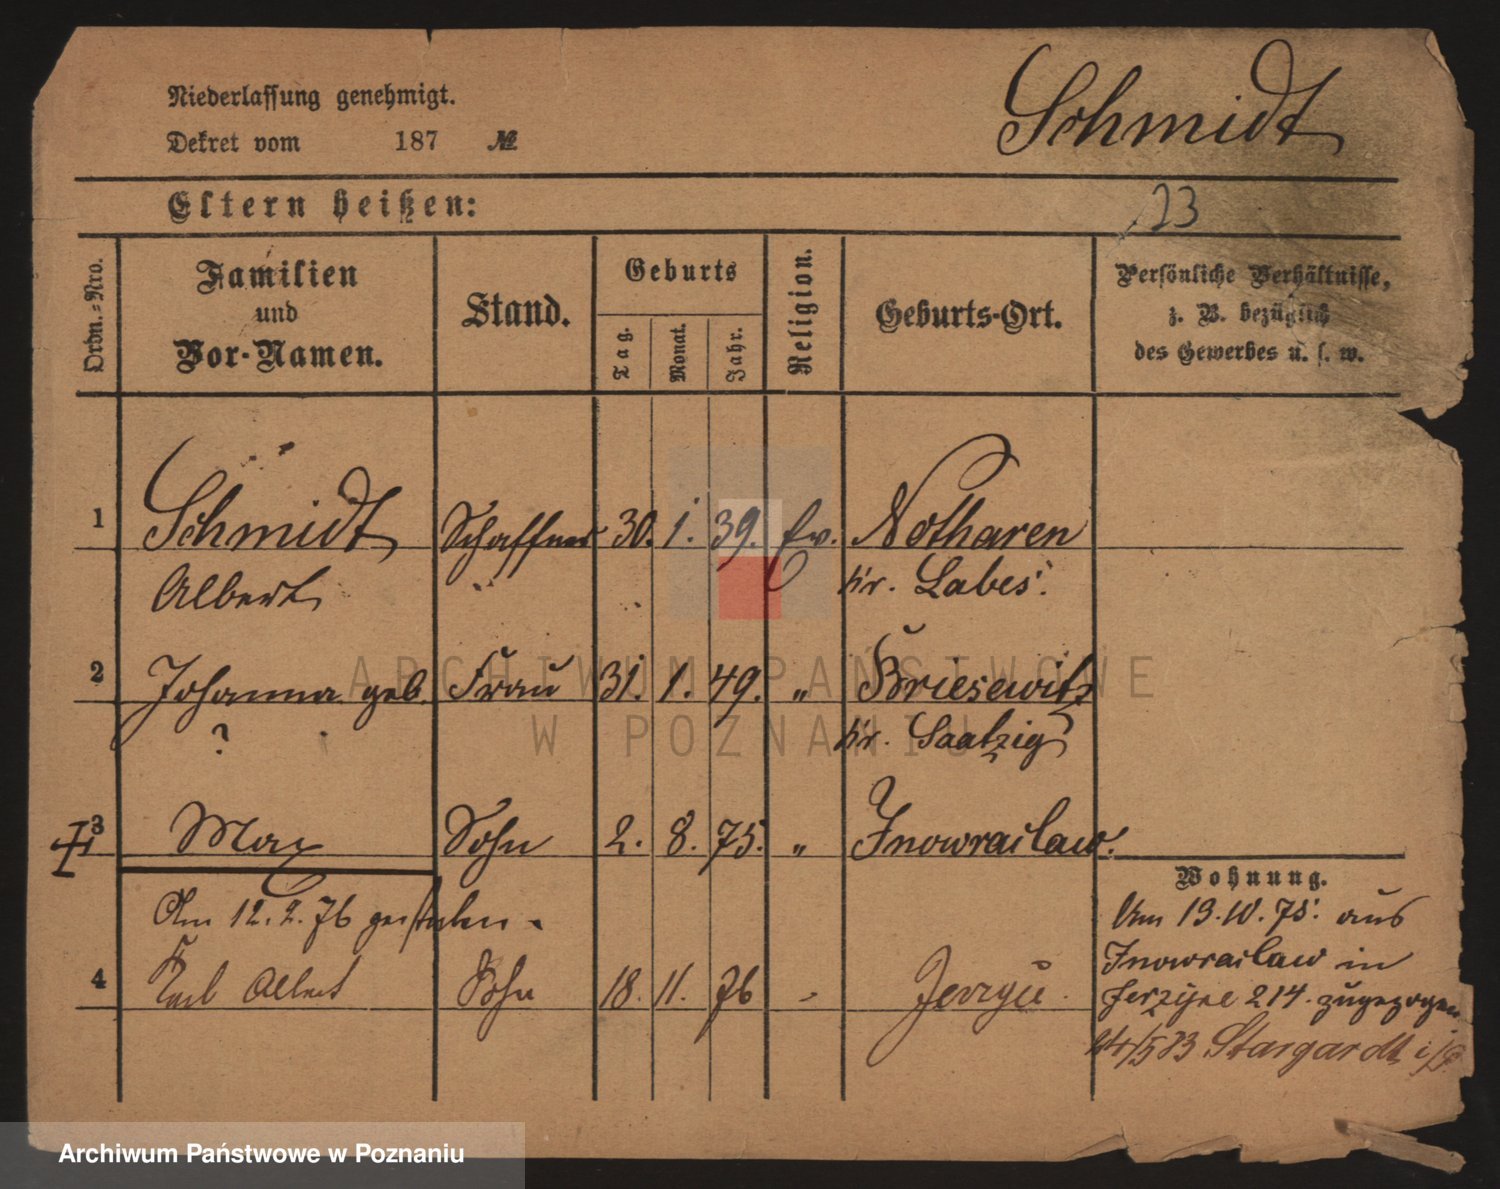 Niederlassung genehmigt.
Dekret vom 187 №
Schmidt
Eltern heißen:
23
Ordm.-Nro.
Familien und Vor-Namen.
Stand.
Geburts
Tag.
Monat.
Jahr.
Religion.
Geburts-Ort.
Persönliche Verhältnisse,
z. B. bezüglich
des Gewerbes u. s. w.
1 Schmidt Schaffner 30. 1. 39. ev. Notharen
Albert Kr. Labes.
2 Johanna geb. Frau 31. 1. 49. „ Briesewitz
? Kr. Saatzig
3 Max Sohn 2. 8. 75. „ Inowraclaw.
Am 12. 2. 76 gestorben.
4 Karl Albert Sohn 18. 11. 76 „
Wohnung.
Am 19. 10. 75. aus
Inowraclaw in
Jerzyce 214. zugezogen
24/5 83 Stargardt i/P.
ARCHIWUM PAŃSTWOWE
W POZNANIU
Archiwum Państwowe w Poznaniu